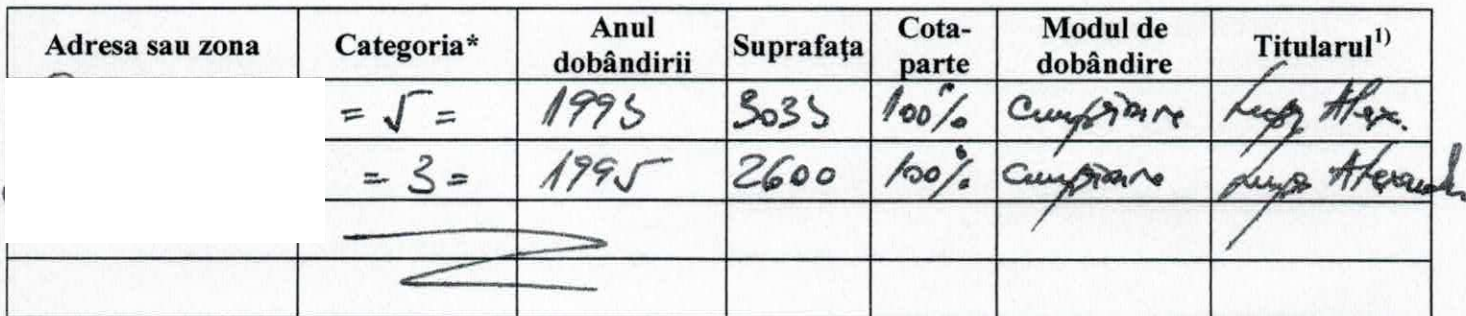 Adresa sau zona Categoria* Anul dobândirii Suprafaţa Cota-parte Modul de dobândire Titularul1)
= 5 = 1993 3033 100% Cumpărare Lupu Alex.
= 3 = 1995 2600 100% Cumpărare Lupu Alexandru